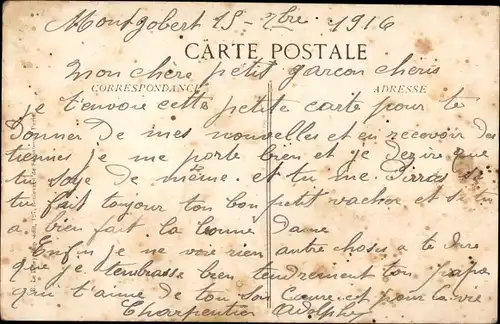 Montgobert 15 - 7bre 1916
CARTE POSTALE
mon chère petit garcon cheris
CORRESPONDANCE
ADRESSE
je t'envoie cette petite carte pour te
donner de mes nouvelles et en recevoir des
tiennes je me porte bien et je dezire que
tu soye de même. et tu me dirras si
tu fait toujour ton bon petit vacher et si tu
a bien fait la bonne dame
Enfin je ne voie rien autre choses a te dire
que je t'embrasse bien tendrement ton papa
qui t'aime de ton son Cœur et pour la vie
Charpentier Adolphe